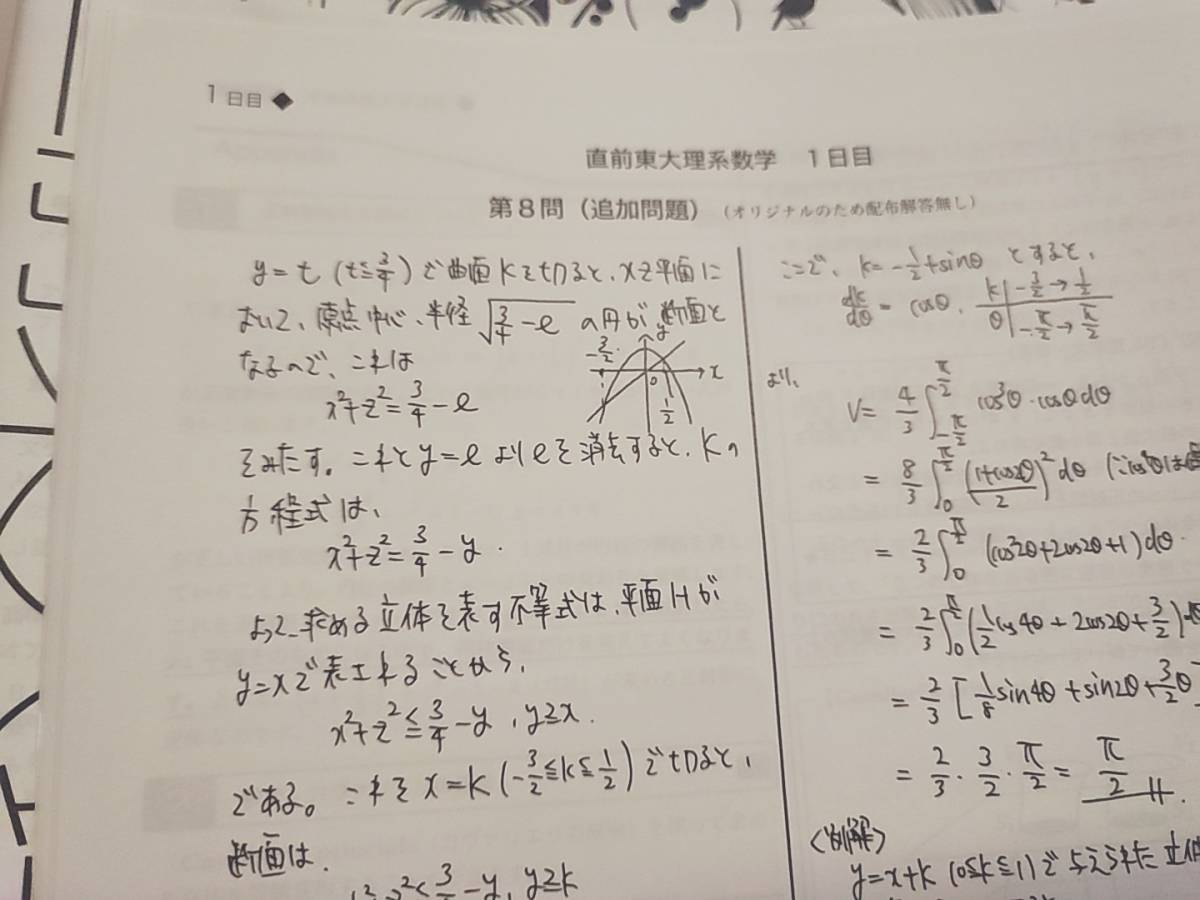 1日目◆
直前東大理系数学 1日目
第8問（追加問題）（オリジナルのため配布解答無し）
y=t (t≦3/4) で曲面Kを切ると、xz平面に
おいて、原点中心、半径 √(3/4-l) の円が断面と
なるので、これは
x²+z²=3/4-l
をみたす。これとy=lよりlを消去すると、Kの
方程式は、
x²+z²=3/4-y.
よって、求める立体を表す不等式は、平面Hが
y=xで表されることから、
x²+z²≦3/4-y, y≧x.
である。これをx=k(-3/2≦k≦1/2)で切ると、
断面は、
z²≦3/-y, y≧k
y
-3/2
0
x
1/2
ここで、k=-1/2+sinθ とすると、
dk/dθ=cosθ, k|-3/2→1/2
θ|-π/2→π/2
より、
V=4/3∫_{-π/2}^{π/2} cos³θ・cosθdθ
=8/3∫_0^{π/2} ((1+cos2θ)/2)² dθ
=2/3∫_0^{π/2} (cos²2θ+2cos2θ+1)dθ
=2/3∫_0^{π/2} (1/2 cos4θ+2cos2θ+3/2)dθ
=2/3[1/8 sin4θ+sin2θ+3/2 θ]
=2/3・3/2・π/2=π/2
〈別解〉
y=x+k (0≦k≦1)で与えられた立体